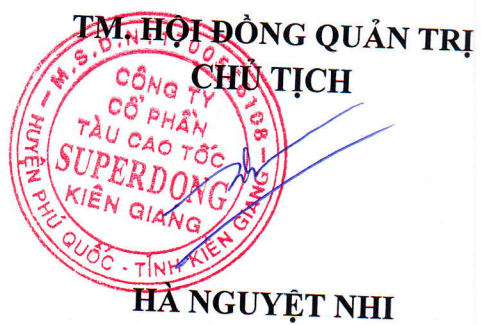 TM. HỘI ĐỒNG QUẢN TRỊ
CHỦ TỊCH
M.S.D.N
CÔNG TY
CỔ PHẦN
TÀU CAO TỐC
SUPERDONG
KIÊN GIANG
HUYỆN PHÚ QUỐC - TỈNH KIÊN GIANG
HÀ NGUYỆT NHI